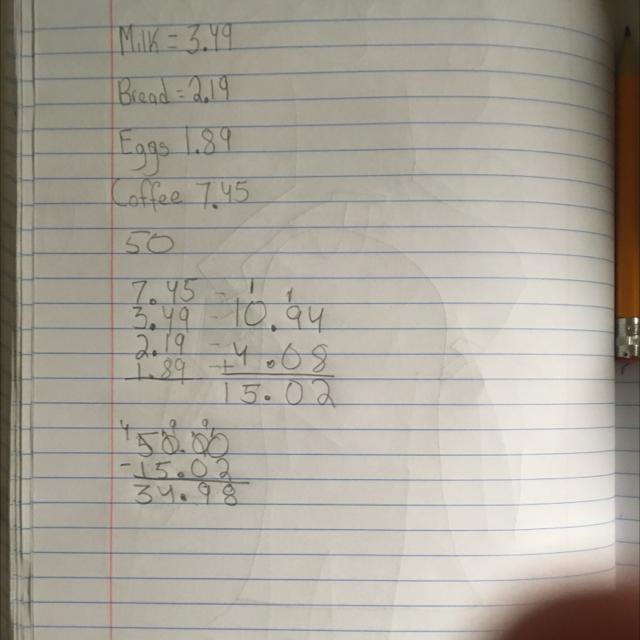 Milk = 3.49
Bread = 2.19
Eggs 1.89
Coffee 7.45
50
7.45 - 1 1
3.49 - 10.94
2.19 -
1.89 + 4.08
15.02
4 9 9
50.00
- 15.02
34.98